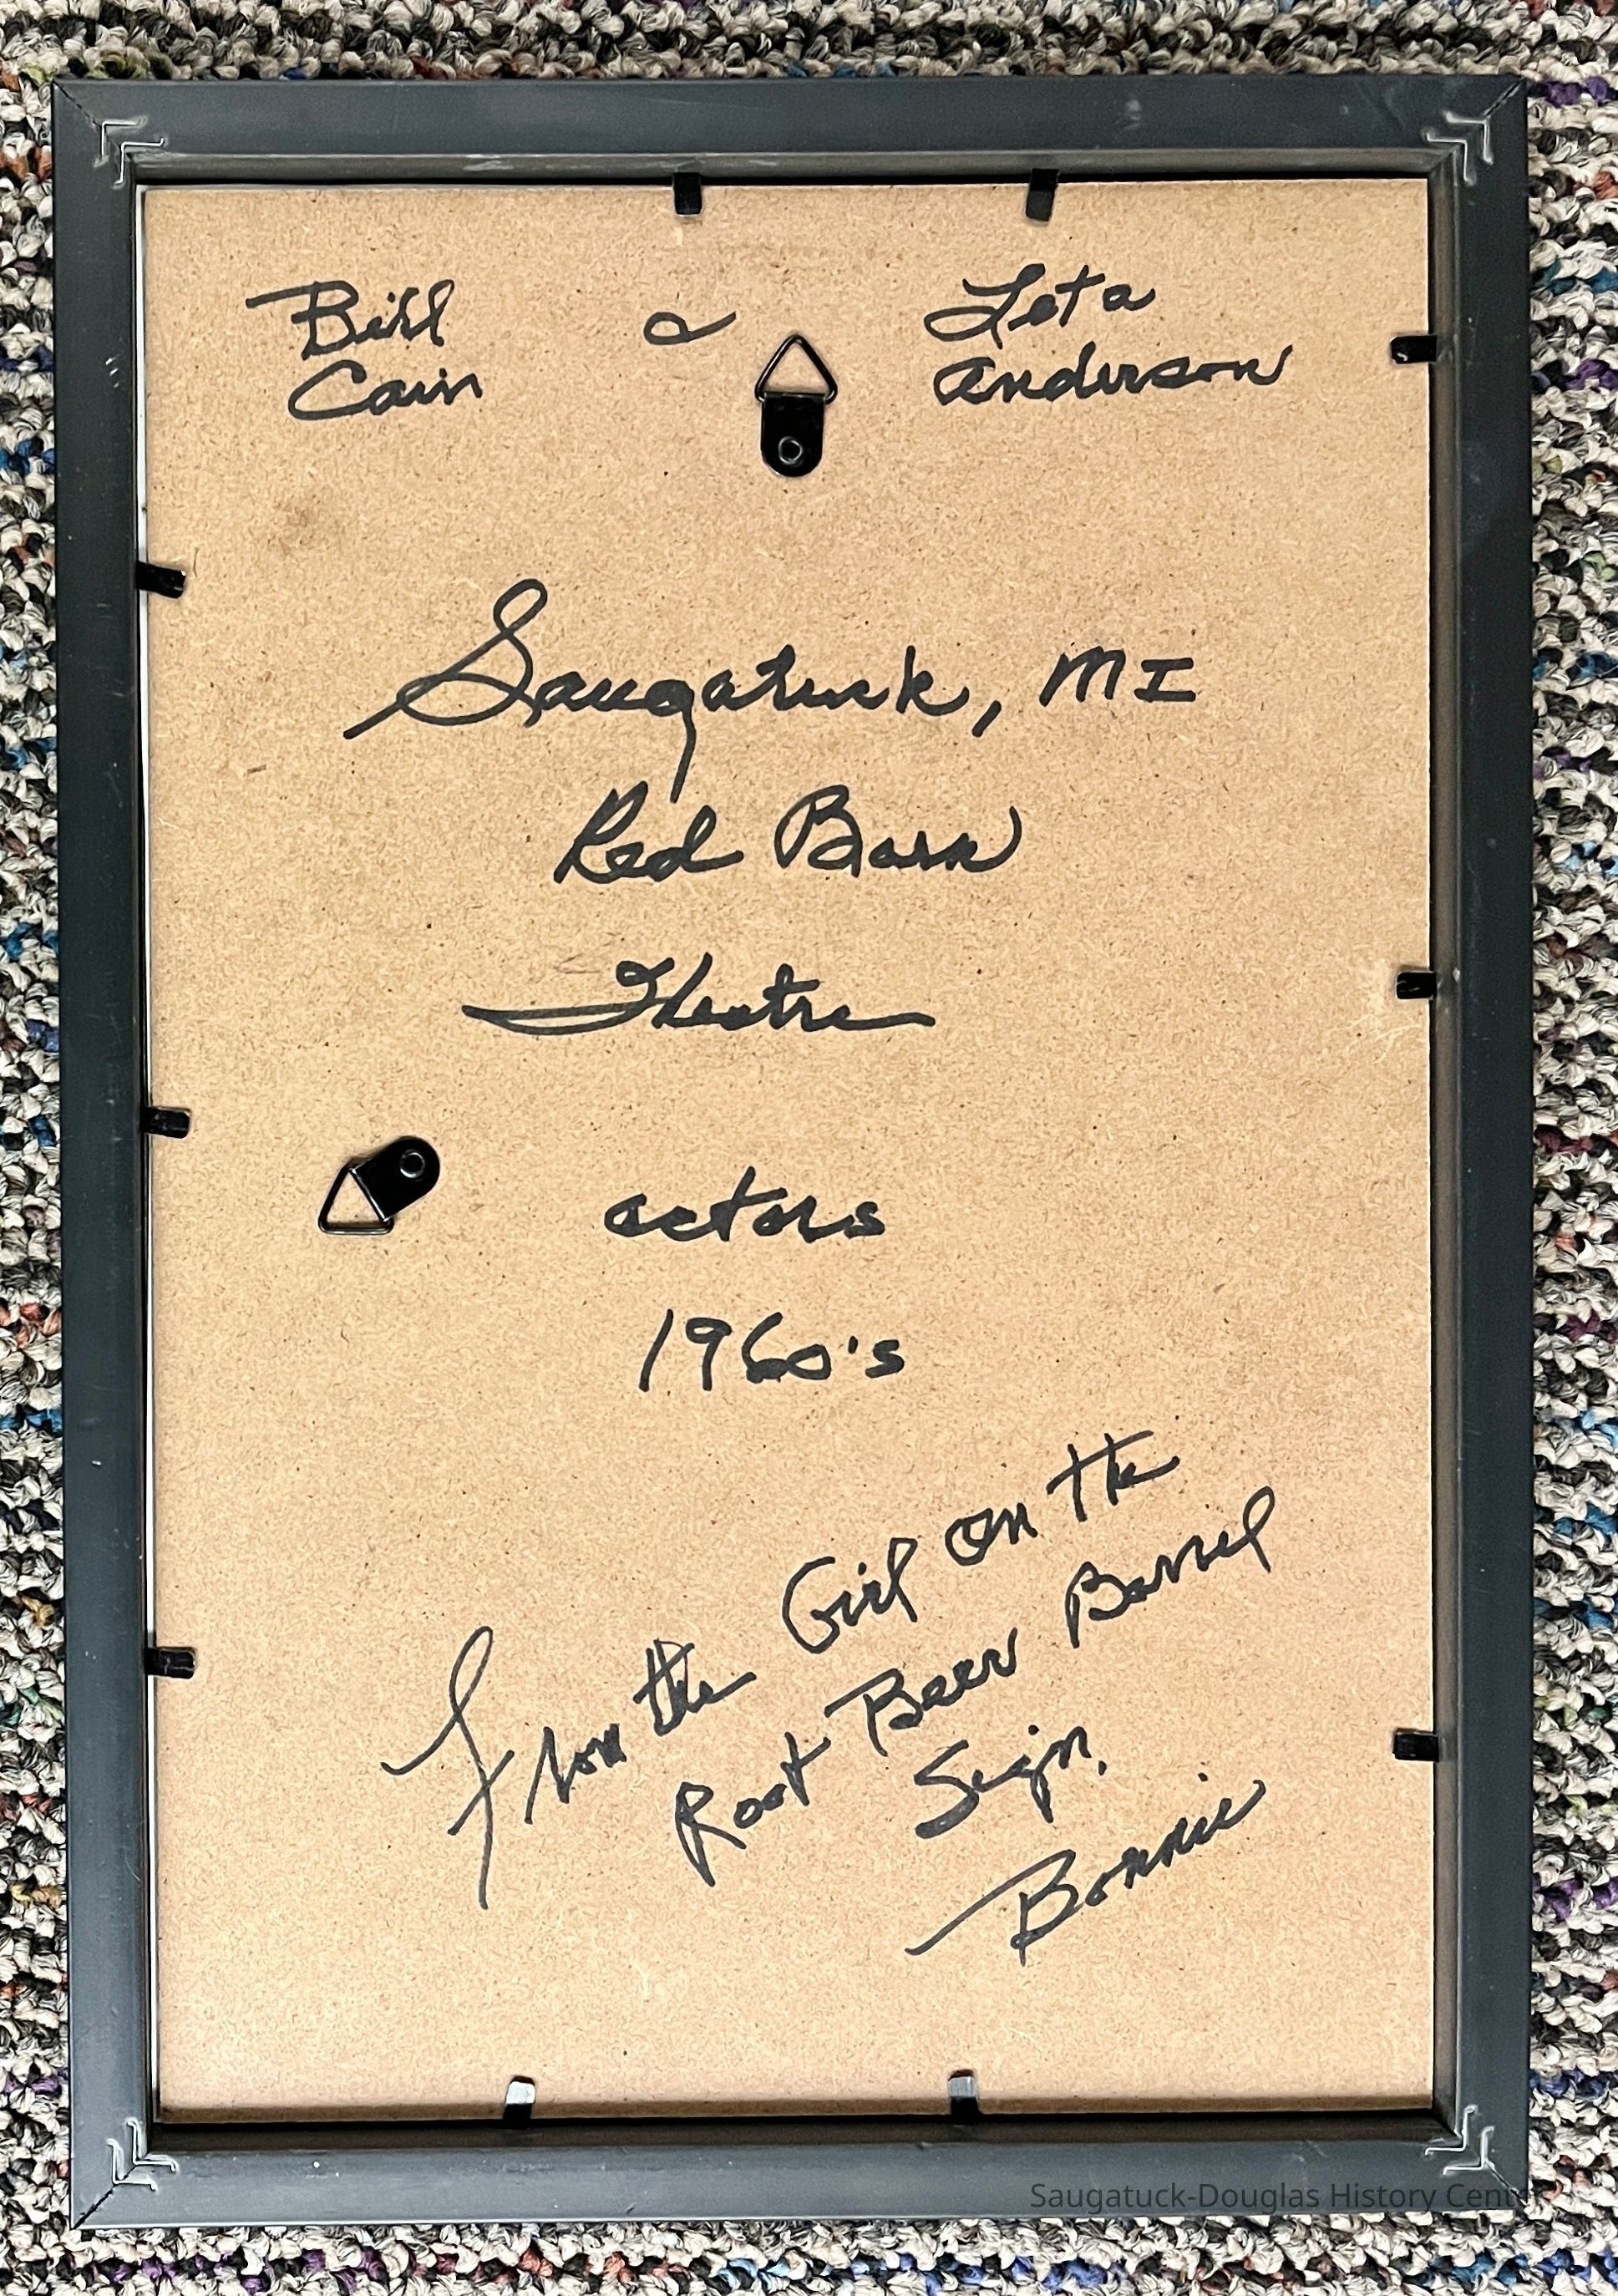 Bill & Leta
Cain Anderson
Saugatuck, MI
Red Barn
Theatre
actors
1960's
From the Girl on the
Root Beer Barrel
Sign.
Bonnie
Saugatuck-Douglas History Center